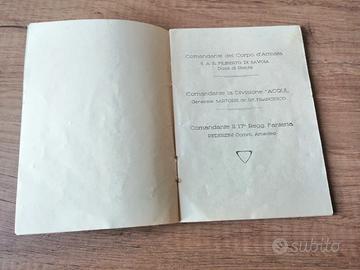 Comandante del Corpo d'Armata
S. A. R. FILIBERTO DI SAVOIA
Duca di Pistoia
Comandante la Divisione "ACQUI„
Generale SARTORIS Dr. FRANCESCO
Comandante il 17° Regg. Fanteria
PEDERZINI Comm. Amedeo
subito